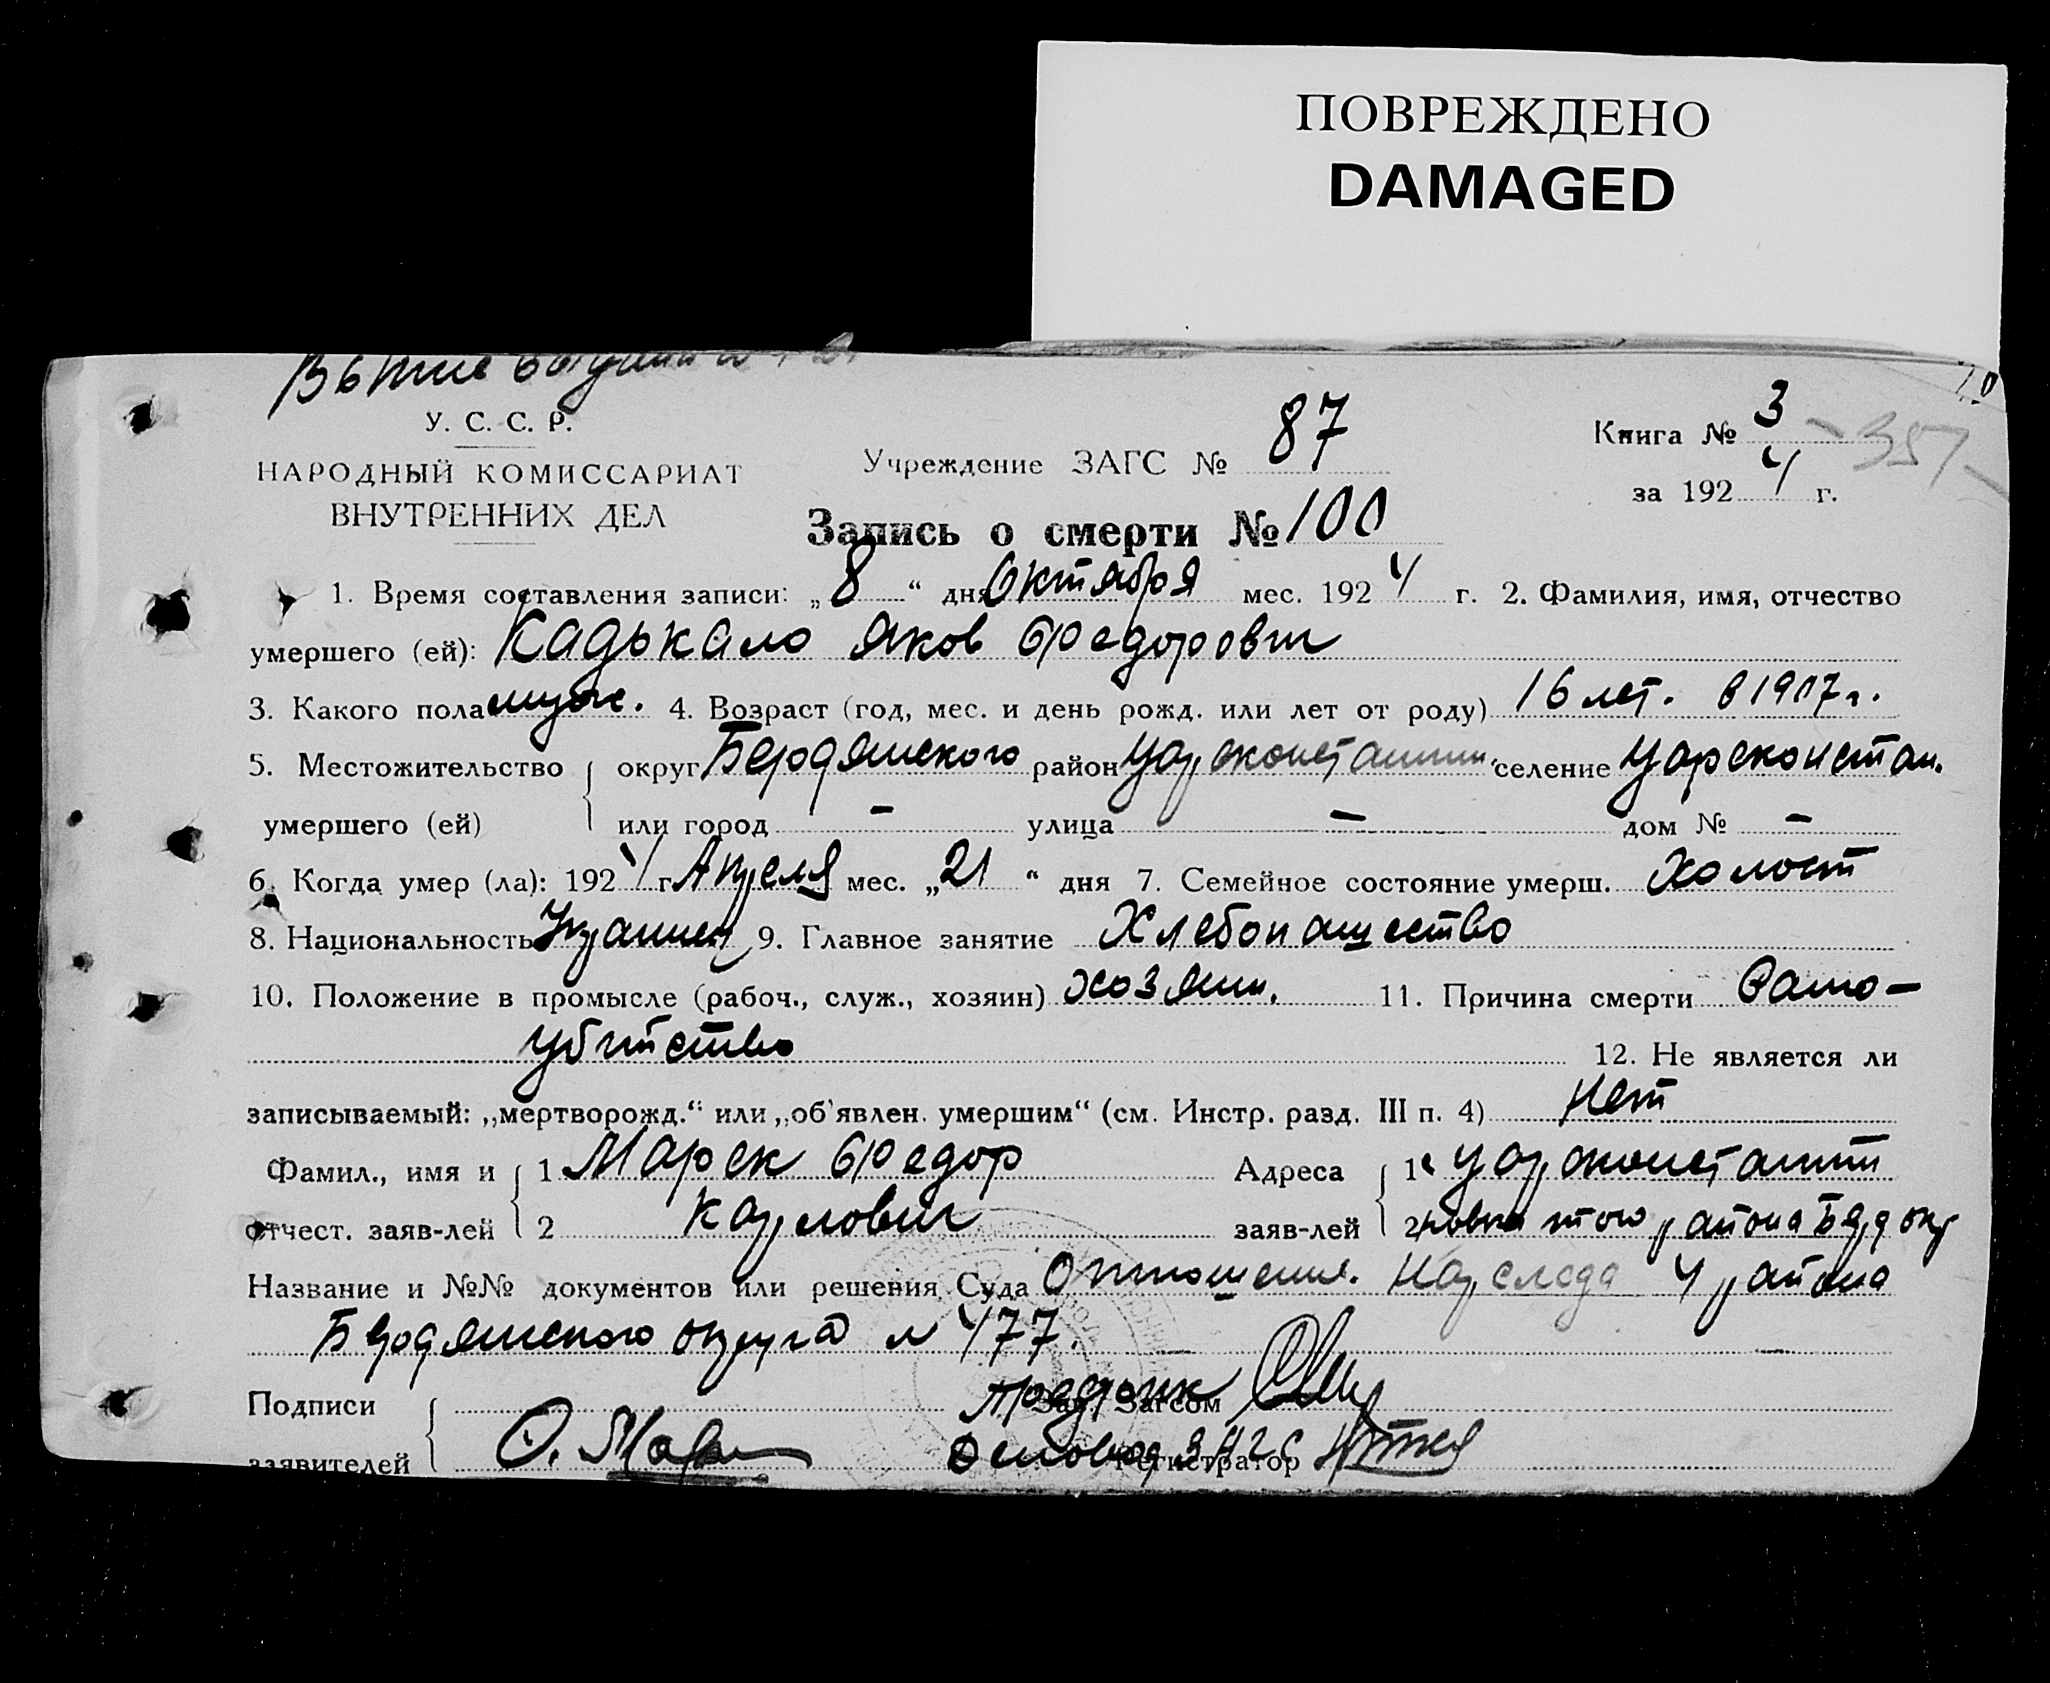 ПОВРЕЖДЕНО
DAMAGED
У. С. С. Р.
НАРОДНЫЙ КОМИССАРИАТ
ВНУТРЕННИХ ДЕЛ
Учреждение ЗАГС № 87
Книга № 3 - 357
за 1924 г.
Запись о смерти № 100
1. Время составления записи: „8“ дня Октября мес. 1924 г. 2. Фамилия, имя, отчество
умершего (ей): Кадькало Яков Федорович
3. Какого пола муж. 4. Возраст (год, мес. и день рожд. или лет от роду) 16 лет. в 1907 г.
5. Местожительство округ Бердянского район Цареконстантин. селение Цареконстан.
умершего (ей) или город — улица — дом № —
6. Когда умер (ла): 1924 г. Апреля мес. „21“ дня 7. Семейное состояние умерш. Холост
8. Национальность Украинец 9. Главное занятие Хлебопашество
10. Положение в промысле (рабоч., служ., хозяин) хозяин. 11. Причина смерти Само-
убийство 12. Не является ли
записываемый: „мертворожд.“ или „об'явлен. умершим“ (см. Инстр. разд. III п. 4) Нет
Фамил., имя и 1 Марек Федор Адреса 1 Цареконстанти
отчест. заяв-лей 2 Карлович заяв-лей 2 новка того района Берд окр
Название и №№ документов или решения Суда Отношение. Нарследа 4 района
Бердянского округа № 477.
Подписи Зав. Загсом
заявителей Ф. Марек Регистратор